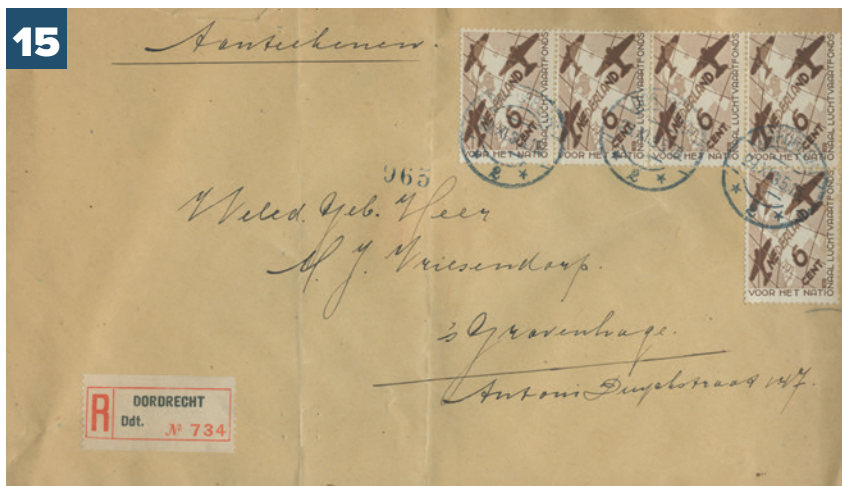 15
Aanteekenen.
NEDERLAND 6 CENT.
VOOR HET NATIONAAL LUCHTVAARTFONDS
NEDERLAND 6 CENT.
VOOR HET NATIONAAL LUCHTVAARTFONDS
NEDERLAND 6 CENT.
VOOR HET NATIONAAL LUCHTVAARTFONDS
NEDERLAND 6 CENT.
VOOR HET NATIONAAL LUCHTVAARTFONDS
965
Weled. Geb. Heer
NEDERLAND 6 CENT.
VOOR HET NATIONAAL LUCHTVAARTFONDS
M. J. Vriesendorp.
's Gravenhage.
Antoni Duyckstraat 147.
R DORDRECHT
Ddt. № 734